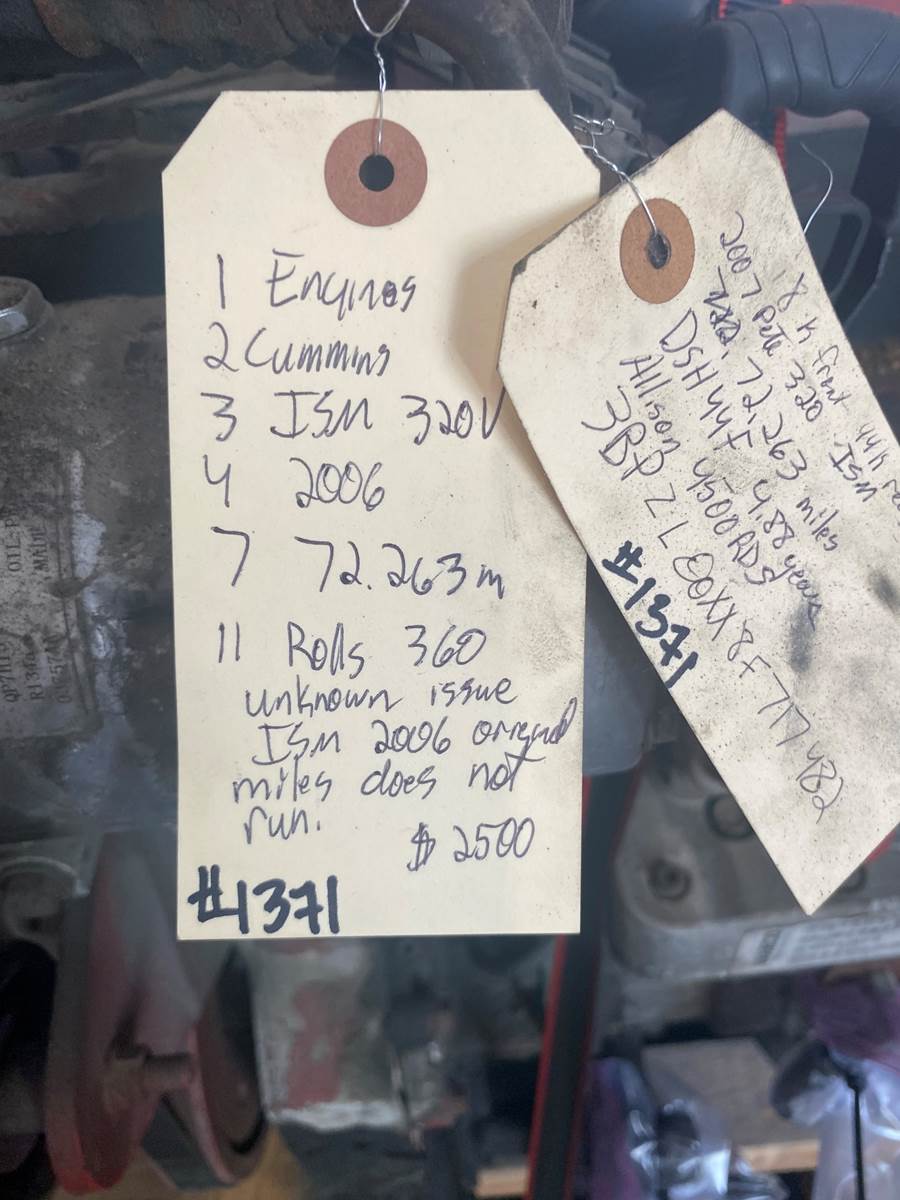 1 Engines
2 Cummins
3 ISM 320V
4 2006
7 72.263m
11 Rolls 360
unknown issue
ISM 2006 original
miles does not
run.
$ 2500
#1371
18 k front 44k
2007 Pete 320 ISM
72,263 miles
DSH44F 4.88
Allison 4500RDS
3BPZL00XX8F717482
#1371